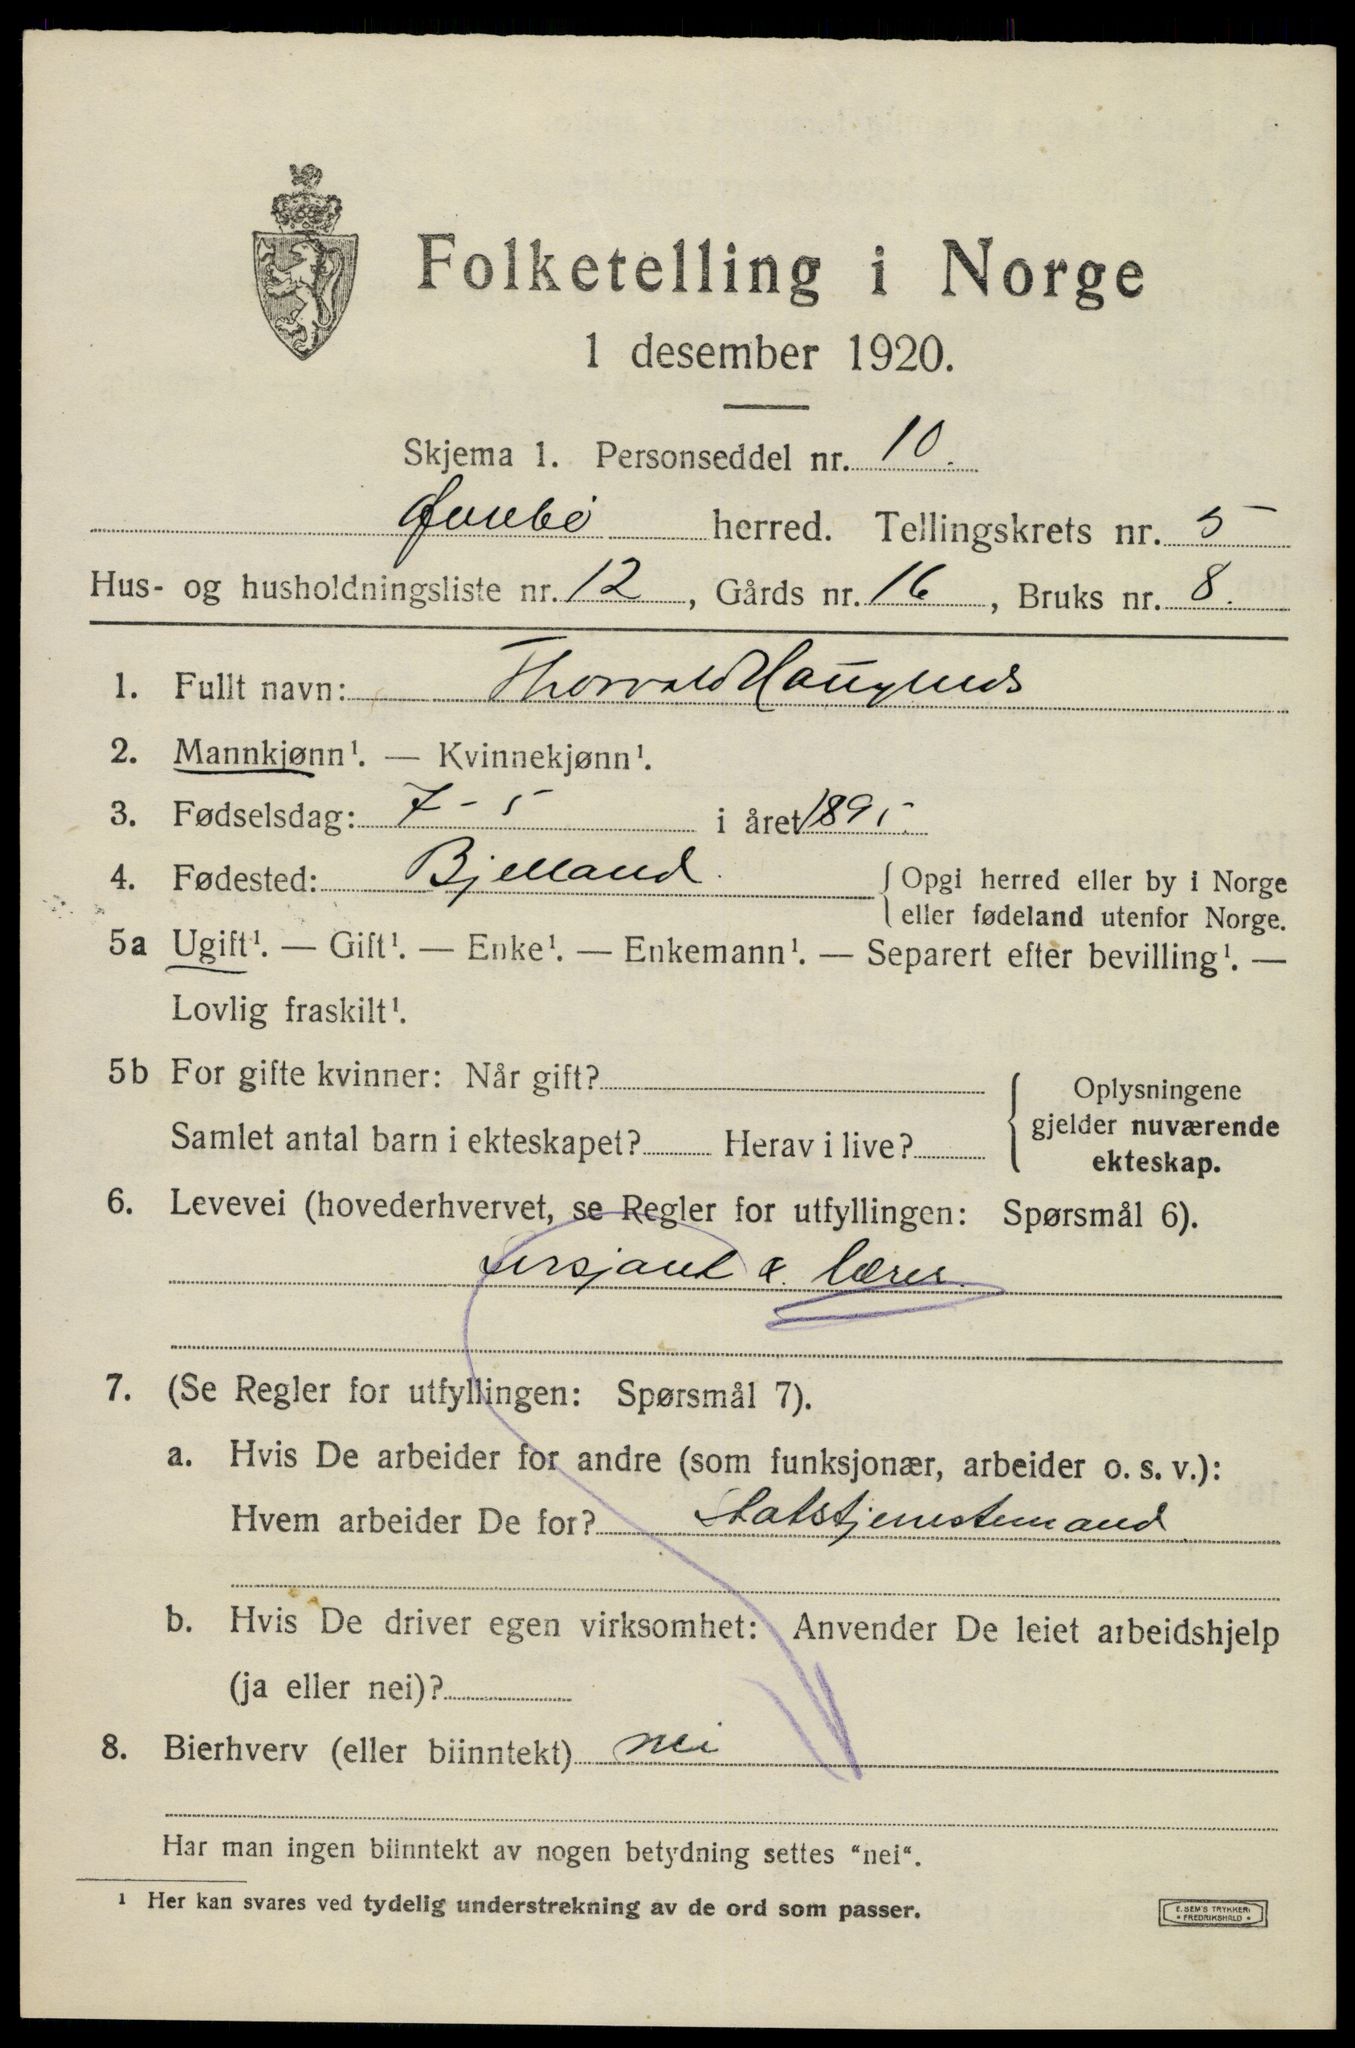 Folketelling i Norge
1 desember 1920.
Skjema 1. Personseddel nr. 10.
Øvrebø herred. Tellingskrets nr. 5
Hus- og husholdningsliste nr. 12, Gårds nr. 16, Bruks nr. 8.
1. Fullt navn: Thorvald Haugland
2. Mannkjønn¹. — Kvinnekjønn¹.
3. Fødselsdag: 7-5 i året 1895
4. Fødested: Bjelland. { Opgi herred eller by i Norge
eller fødeland utenfor Norge.
5a Ugift¹. — Gift¹. — Enke¹. — Enkemann¹. — Separert efter bevilling¹. —
Lovlig fraskilt¹.
5b For gifte kvinner: Når gift?
Samlet antal barn i ekteskapet? Herav i live?
{ Oplysningene
gjelder nuværende
ekteskap.
6. Levevei (hovederhvervet, se Regler for utfyllingen: Spørsmål 6).
sersjant & lærer.
7. (Se Regler for utfyllingen: Spørsmål 7).
a. Hvis De arbeider for andre (som funksjonær, arbeider o. s. v.):
Hvem arbeider De for? Statstjenestemand
b. Hvis De driver egen virksomhet: Anvender De leiet arbeidshjelp
(ja eller nei)?
8. Bierhverv (eller biinntekt) nei
Har man ingen biinntekt av nogen betydning settes "nei".
¹ Her kan svares ved tydelig understrekning av de ord som passer.
E. SEM'S TRYKKERI
* FREDRIKSHALD *